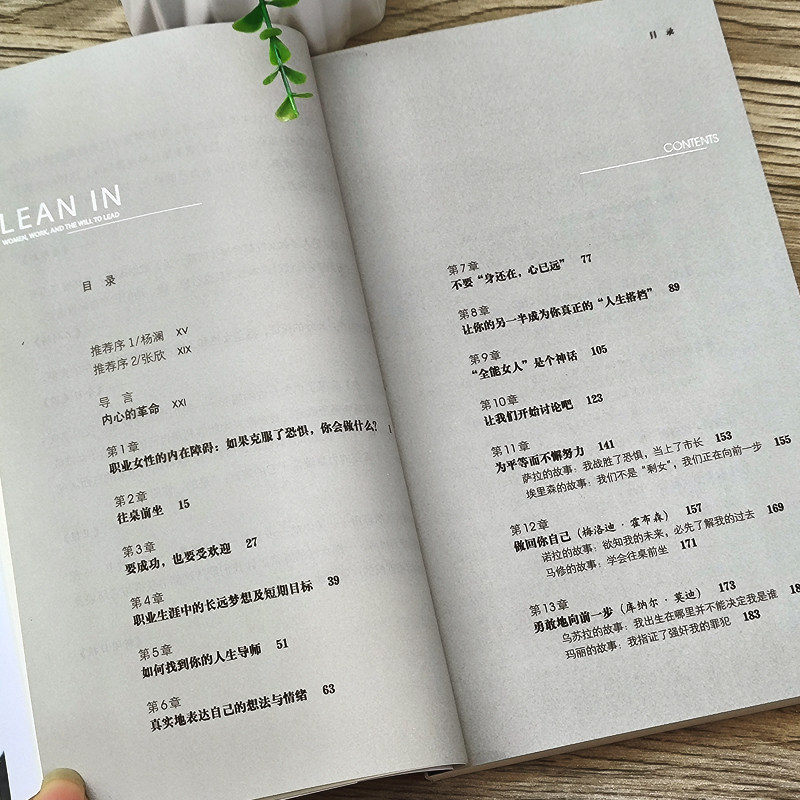 LEAN IN
WOMEN, WORK, AND THE WILL TO LEAD
目 录
推荐序 1/杨澜 XV
推荐序 2/张欣 XIX
导 言
内心的革命 XXI
第1章
职业女性的内在障碍：如果克服了恐惧，你会做什么？ 1
第2章
往桌前坐 15
第3章
要成功，也要受欢迎 27
第4章
职业生涯中的长远梦想及短期目标 39
第5章
如何找到你的人生导师 51
第6章
真实地表达自己的想法与情绪 63
目 录
CONTENTS
第7章
不要“身还在，心已远” 77
第8章
让你的另一半成为你真正的“人生搭档” 89
第9章
“全能女人”是个神话 105
第10章
让我们开始讨论吧 123
第11章
为平等而不懈努力 141
萨拉的故事：我战胜了恐惧，当上了市长 153
埃里森的故事：我们不是“剩女”，我们正在向前一步 155
第12章
做回你自己（梅洛迪·霍布森） 157
诺拉的故事：欲知我的未来，必先了解我的过去 169
马修的故事：学会往桌前坐 171
第13章
勇敢地向前一步（库纳尔·莫迪） 173
乌苏拉的故事：我出生在哪里并不能决定我是谁
玛丽的故事：我指证了强奸我的罪犯 183